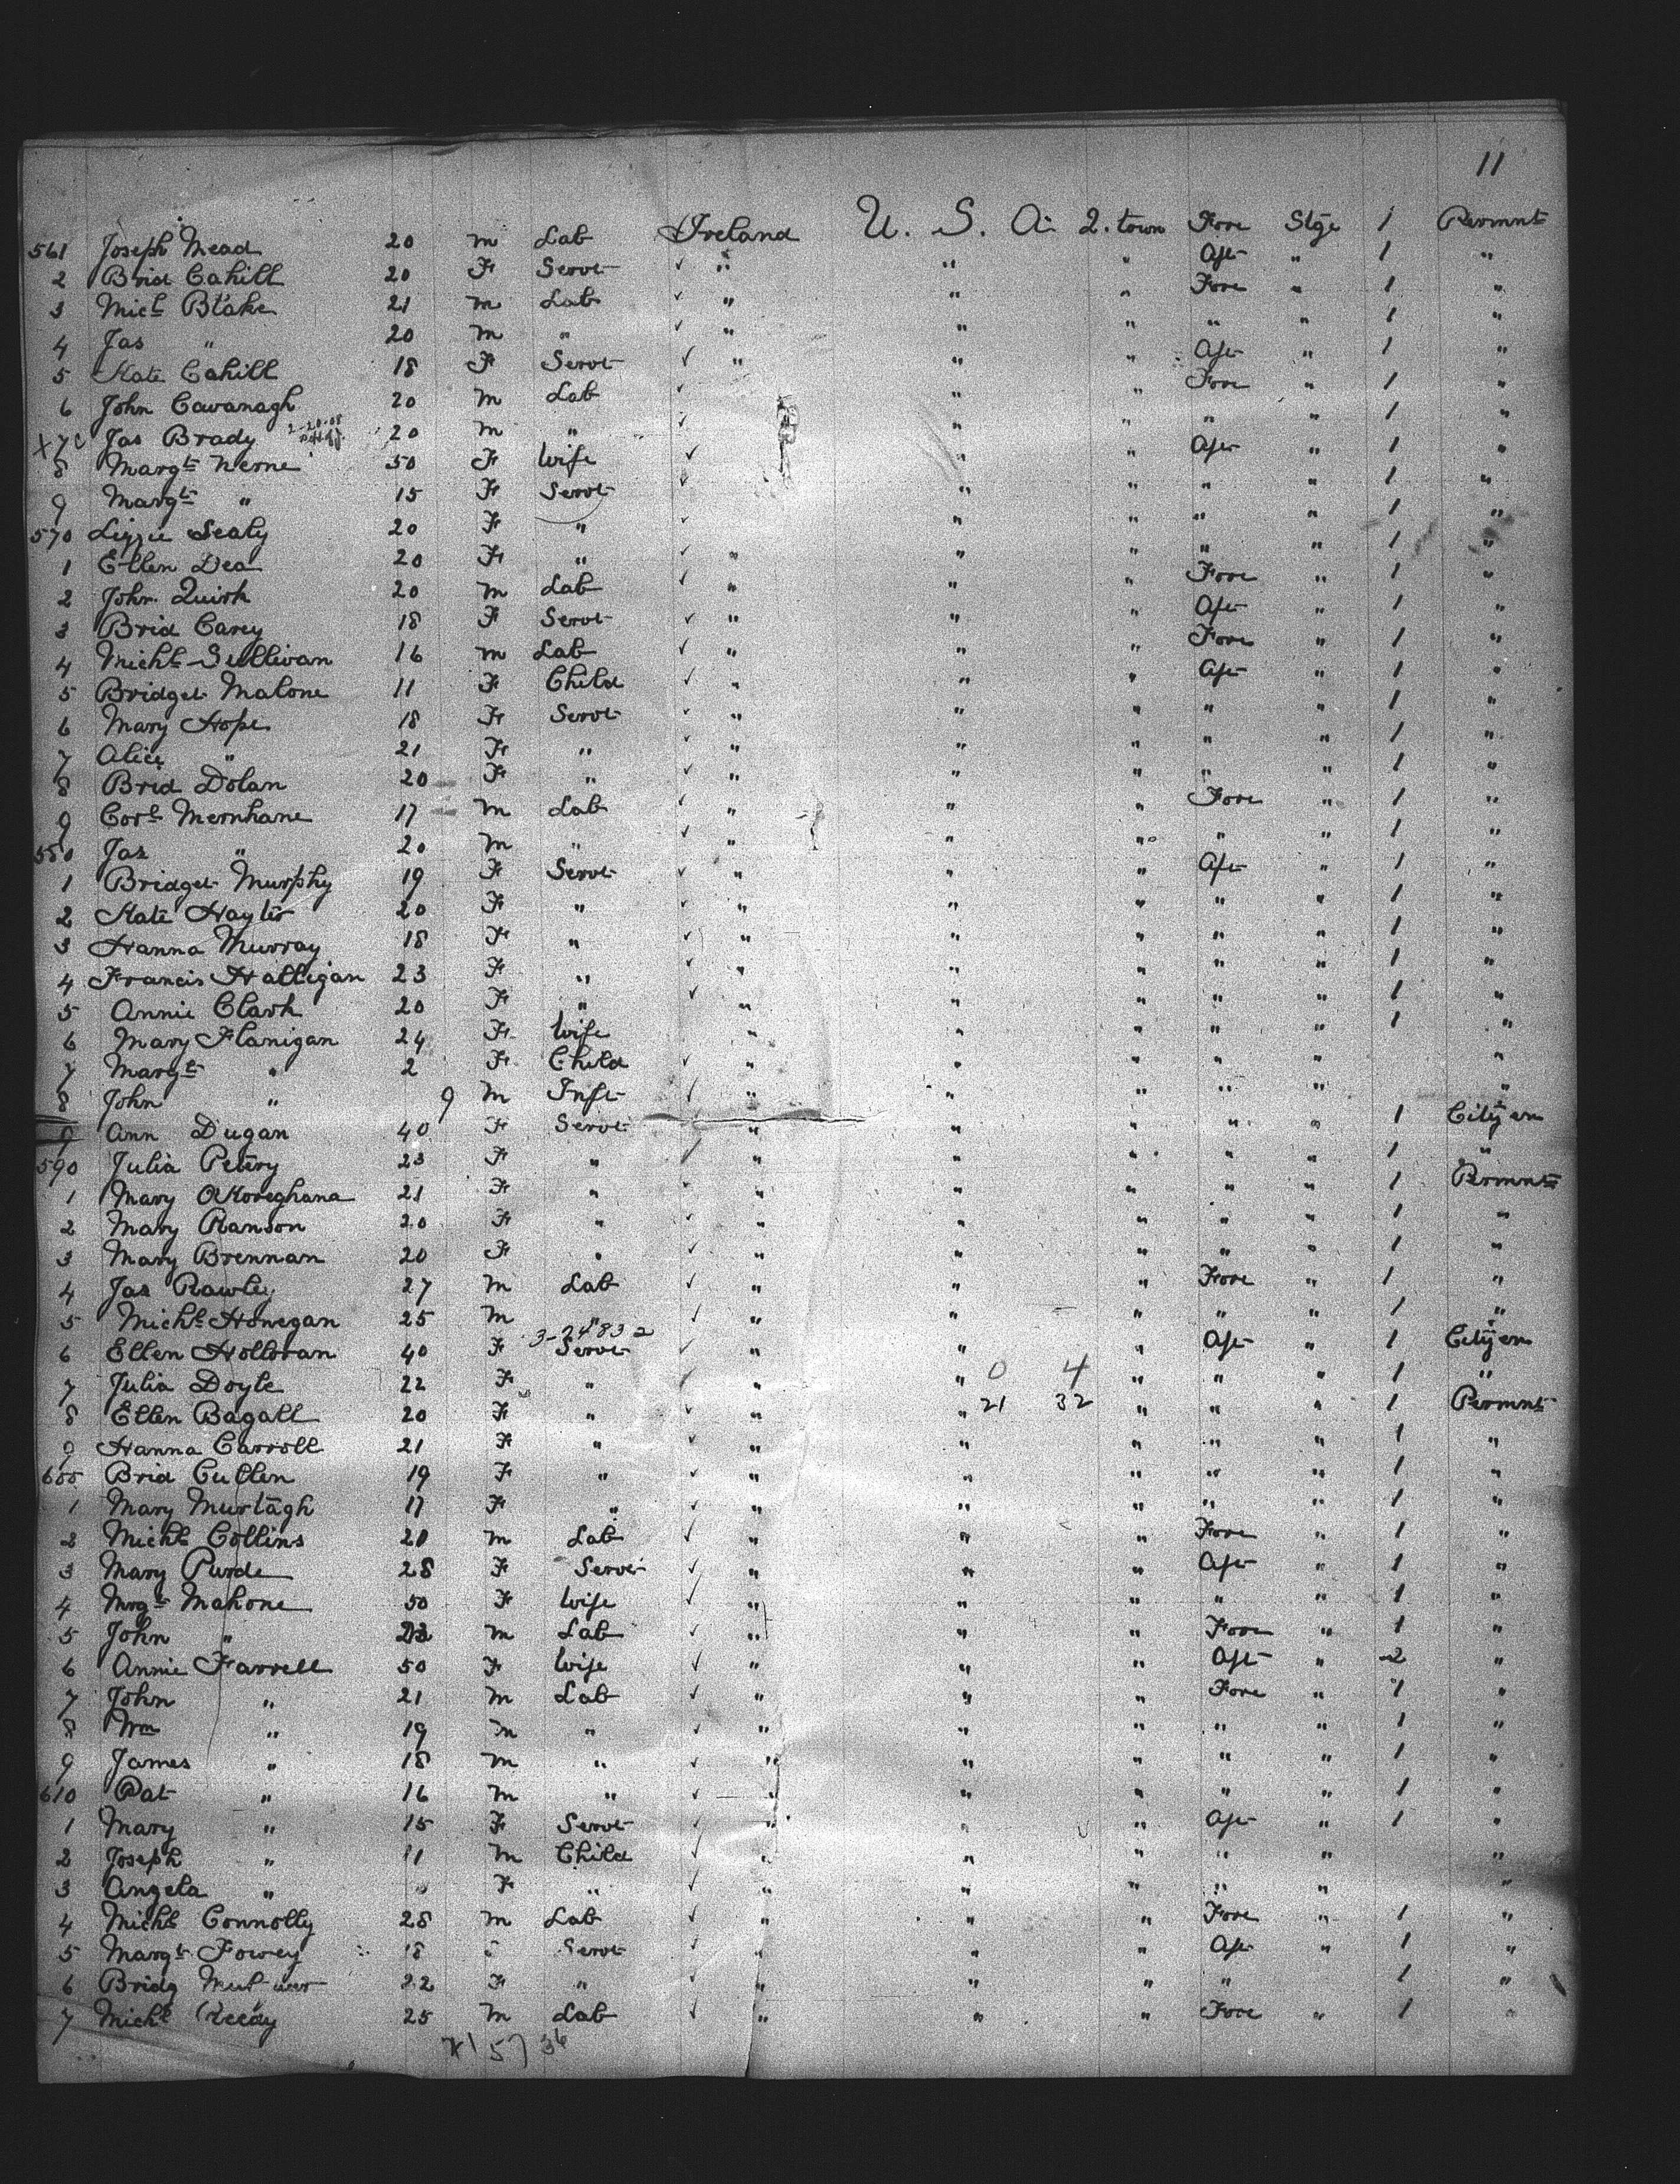 11
561 Joseph Mead 20 m Lab Ireland U. S. A. Q. town Fore Stge 1 Permnt
2 Brid Cahill 20 F Servt ✓ " " " Aft " 1 "
3 Micl Blake 21 m Lab ✓ " " " Fore " 1 "
4 Jas " 20 m " ✓ " " " " " 1 "
5 Kate Cahill 18 F Servt ✓ " " " Aft " 1 "
6 John Cavanagh 20 m Lab ✓ " " Fore " 1 "
X7c Jas Brady 2-20-08 20 m " ✓ " " " " 1 "
8 Margt Nerne 50 F Wife ✓ " " Aft " 1 "
9 Margt " 15 F Servt ✓ " " " " 1 "
570 Lizzie Sealy 20 F " ✓ " " " " 1 "
1 Ellen Dea 20 F " ✓ " " " " " 1 "
2 John Quirk 20 m Lab ✓ " " " Fore " 1 "
3 Brid Carey 18 F Servt ✓ " " " Aft " 1 "
4 Michl Sullivan 16 m Lab ✓ " " " Fore " 1 "
5 Bridget Malone 11 F Child ✓ " " " Aft " 1 "
6 Mary Hope 18 F Servt ✓ " " " " " 1 "
7 Alice " 21 F " ✓ " " " " " 1 "
8 Brid Dolan 20 F " ✓ " " " " " 1 "
9 Corl Mernhane 17 m Lab ✓ " " " Fore " 1 "
580 Jas " 20 m " ✓ " " " " " 1 "
1 Bridget Murphy 19 F Servt ✓ " " " Aft " 1 "
2 Kate Hayter 20 F " ✓ " " " " " 1 "
3 Hanna Murray 18 F " ✓ " " " " " 1 "
4 Francis Halligan 23 F " ✓ " " " " " 1 "
5 Annie Clark 20 F " ✓ " " " " " 1 "
6 Mary Flanigan 24 F Wife " " " " " 1 "
7 Margt " 2 F Child ✓ " " " " " "
8 John " 9 m Inft ✓ " " " " " "
9 Ann Dugan 40 F Servt " " " " " 1 Citizen
590 Julia Petery 23 F " ✓ " " " " " 1 "
1 Mary OKoreghana 21 F " " " " " " 1 Permnt
2 Mary Ranson 20 F " ✓ " " " " " 1 "
3 Mary Brennan 20 F " ✓ " " " " " 1 "
4 Jas Rawley 27 m Lab ✓ " " " Fore " 1 "
5 Michl Honegan 25 m " ✓ " " " " " 1 "
3-24832
6 Ellen Holloran 40 F Servt ✓ " " " Aft " 1 Citizen
7 Julia Doyle 22 F " ✓ " " 0 4 " " " 1 "
8 Ellen Bagall 20 F " ✓ " " 21 32 " " " 1 Permnt
9 Hanna Carroll 21 F " ✓ " " " " " 1 "
600 Brid Cullen 19 F " ✓ " " " " " 1 "
1 Mary Murtagh 17 F " ✓ " " " " " 1 "
2 Michl Collins 20 m Lab ✓ " " " Fore " 1 "
3 Mary Purde 28 F Servt ✓ " " " Aft " 1 "
4 Mrgt Mahone 50 F Wife ✓ " " " " " 1 "
5 John " 23 m Lab ✓ " " " Fore " 1 "
6 Annie Farrell 50 F Wife ✓ " " " Aft " 2 "
7 John " 21 m Lab ✓ " " " Fore " 1 "
8 Wm " 19 m " ✓ " " " " " 1 "
9 James " 18 m " ✓ " " " " " 1 "
610 Pat " 16 m " ✓ " " " " " 1 "
1 Mary " 15 F Servt ✓ " " " Aft " 1 "
2 Joseph " 11 m Child ✓ " " " " " "
3 Angela " F " ✓ " " " " " "
4 Michl Connolly 28 m Lab ✓ " " " Fore " 1 "
5 Margt Fowey 18 Servt ✓ " " " Aft " 1 "
6 Bridg 22 F " ✓ " " " " 1 "
7 Michl Reedy 25 m Lab ✓ " " " Fore " 1 "